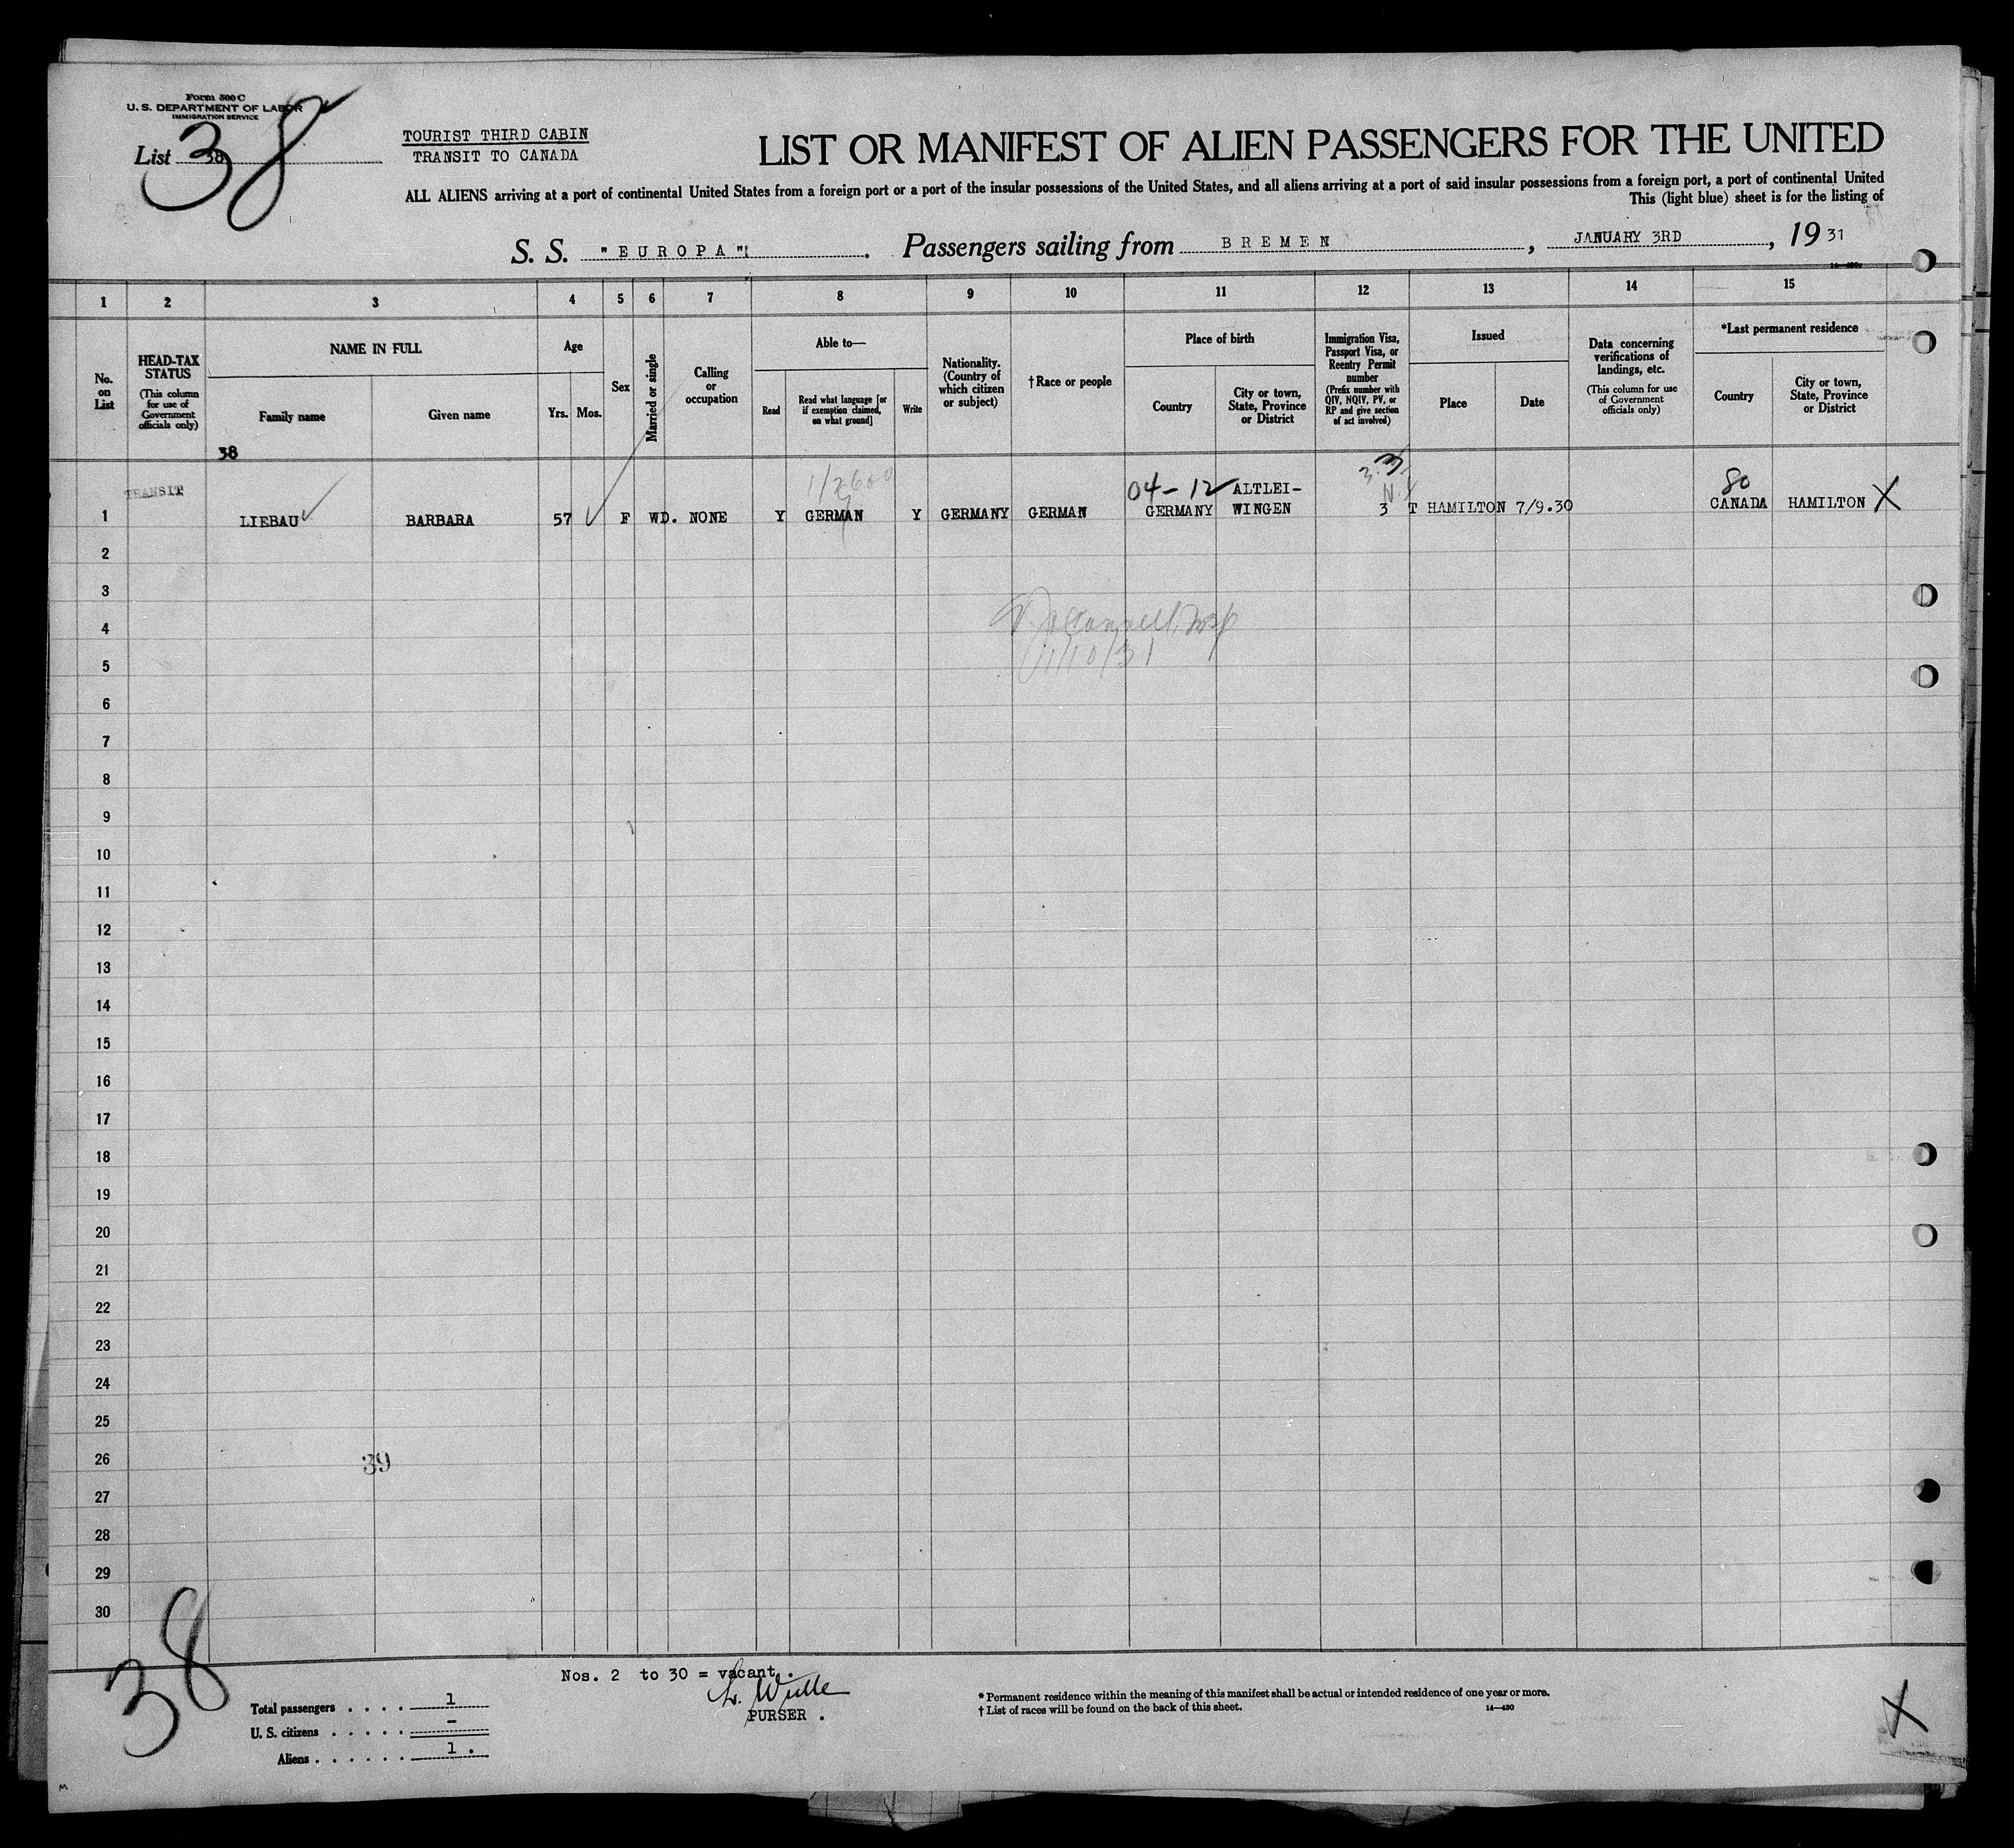 Form 500 C
U. S. DEPARTMENT OF LABOR
IMMIGRATION SERVICE
List 38
38
TOURIST THIRD CABIN
TRANSIT TO CANADA
LIST OR MANIFEST OF ALIEN PASSENGERS FOR THE UNITED
ALL ALIENS arriving at a port of continental United States from a foreign port or a port of the insular possessions of the United States, and all aliens arriving at a port of said insular possessions from a foreign port, a port of continental United
This (light blue) sheet is for the listing of
S. S. "EUROPA". Passengers sailing from BREMEN, JANUARY 3RD, 19 31
14—480
1 2 3 4 5 6 7 8 9 10 11 12 13 14 15
No. on List
HEAD-TAX STATUS
(This column for use of Government officials only)
NAME IN FULL
Family name
Given name
Age
Yrs. Mos.
Sex
Married or single
Calling or occupation
Able to—
Read
Read what language [or if exemption claimed, on what ground]
Write
Nationality. (Country of which citizen or subject)
†Race or people
Place of birth
Country
City or town, State, Province or District
Immigration Visa, Passport Visa, or Reentry Permit number
(Prefix number with QIV, NQIV, PV, or RP and give section of act involved)
Issued
Place
Date
Data concerning verifications of landings, etc.
(This column for use of Government officials only)
*Last permanent residence
Country
City or town, State, Province or District
38
TRANSIT
1/2600
04-12
3
80
1 LIEBAU BARBARA 57 F WD. NONE Y GERMAN Y GERMANY GERMAN GERMANY ALTLEI-WINGEN 3 T HAMILTON 7/9.30 CANADA HAMILTON X
1/10/31
2
3
4
5
6
7
8
9
10
11
12
13
14
15
16
17
18
19
20
21
22
23
24
25
26
39
27
28
29
30
38
Nos. 2 to 30 = vacant.
PURSER .
Total passengers . . . . 1
U. S. citizens . . . . . –
Aliens . . . . . . 1 .
* Permanent residence within the meaning of this manifest shall be actual or intended residence of one year or more.
† List of races will be found on the back of this sheet.
14—480
X
M